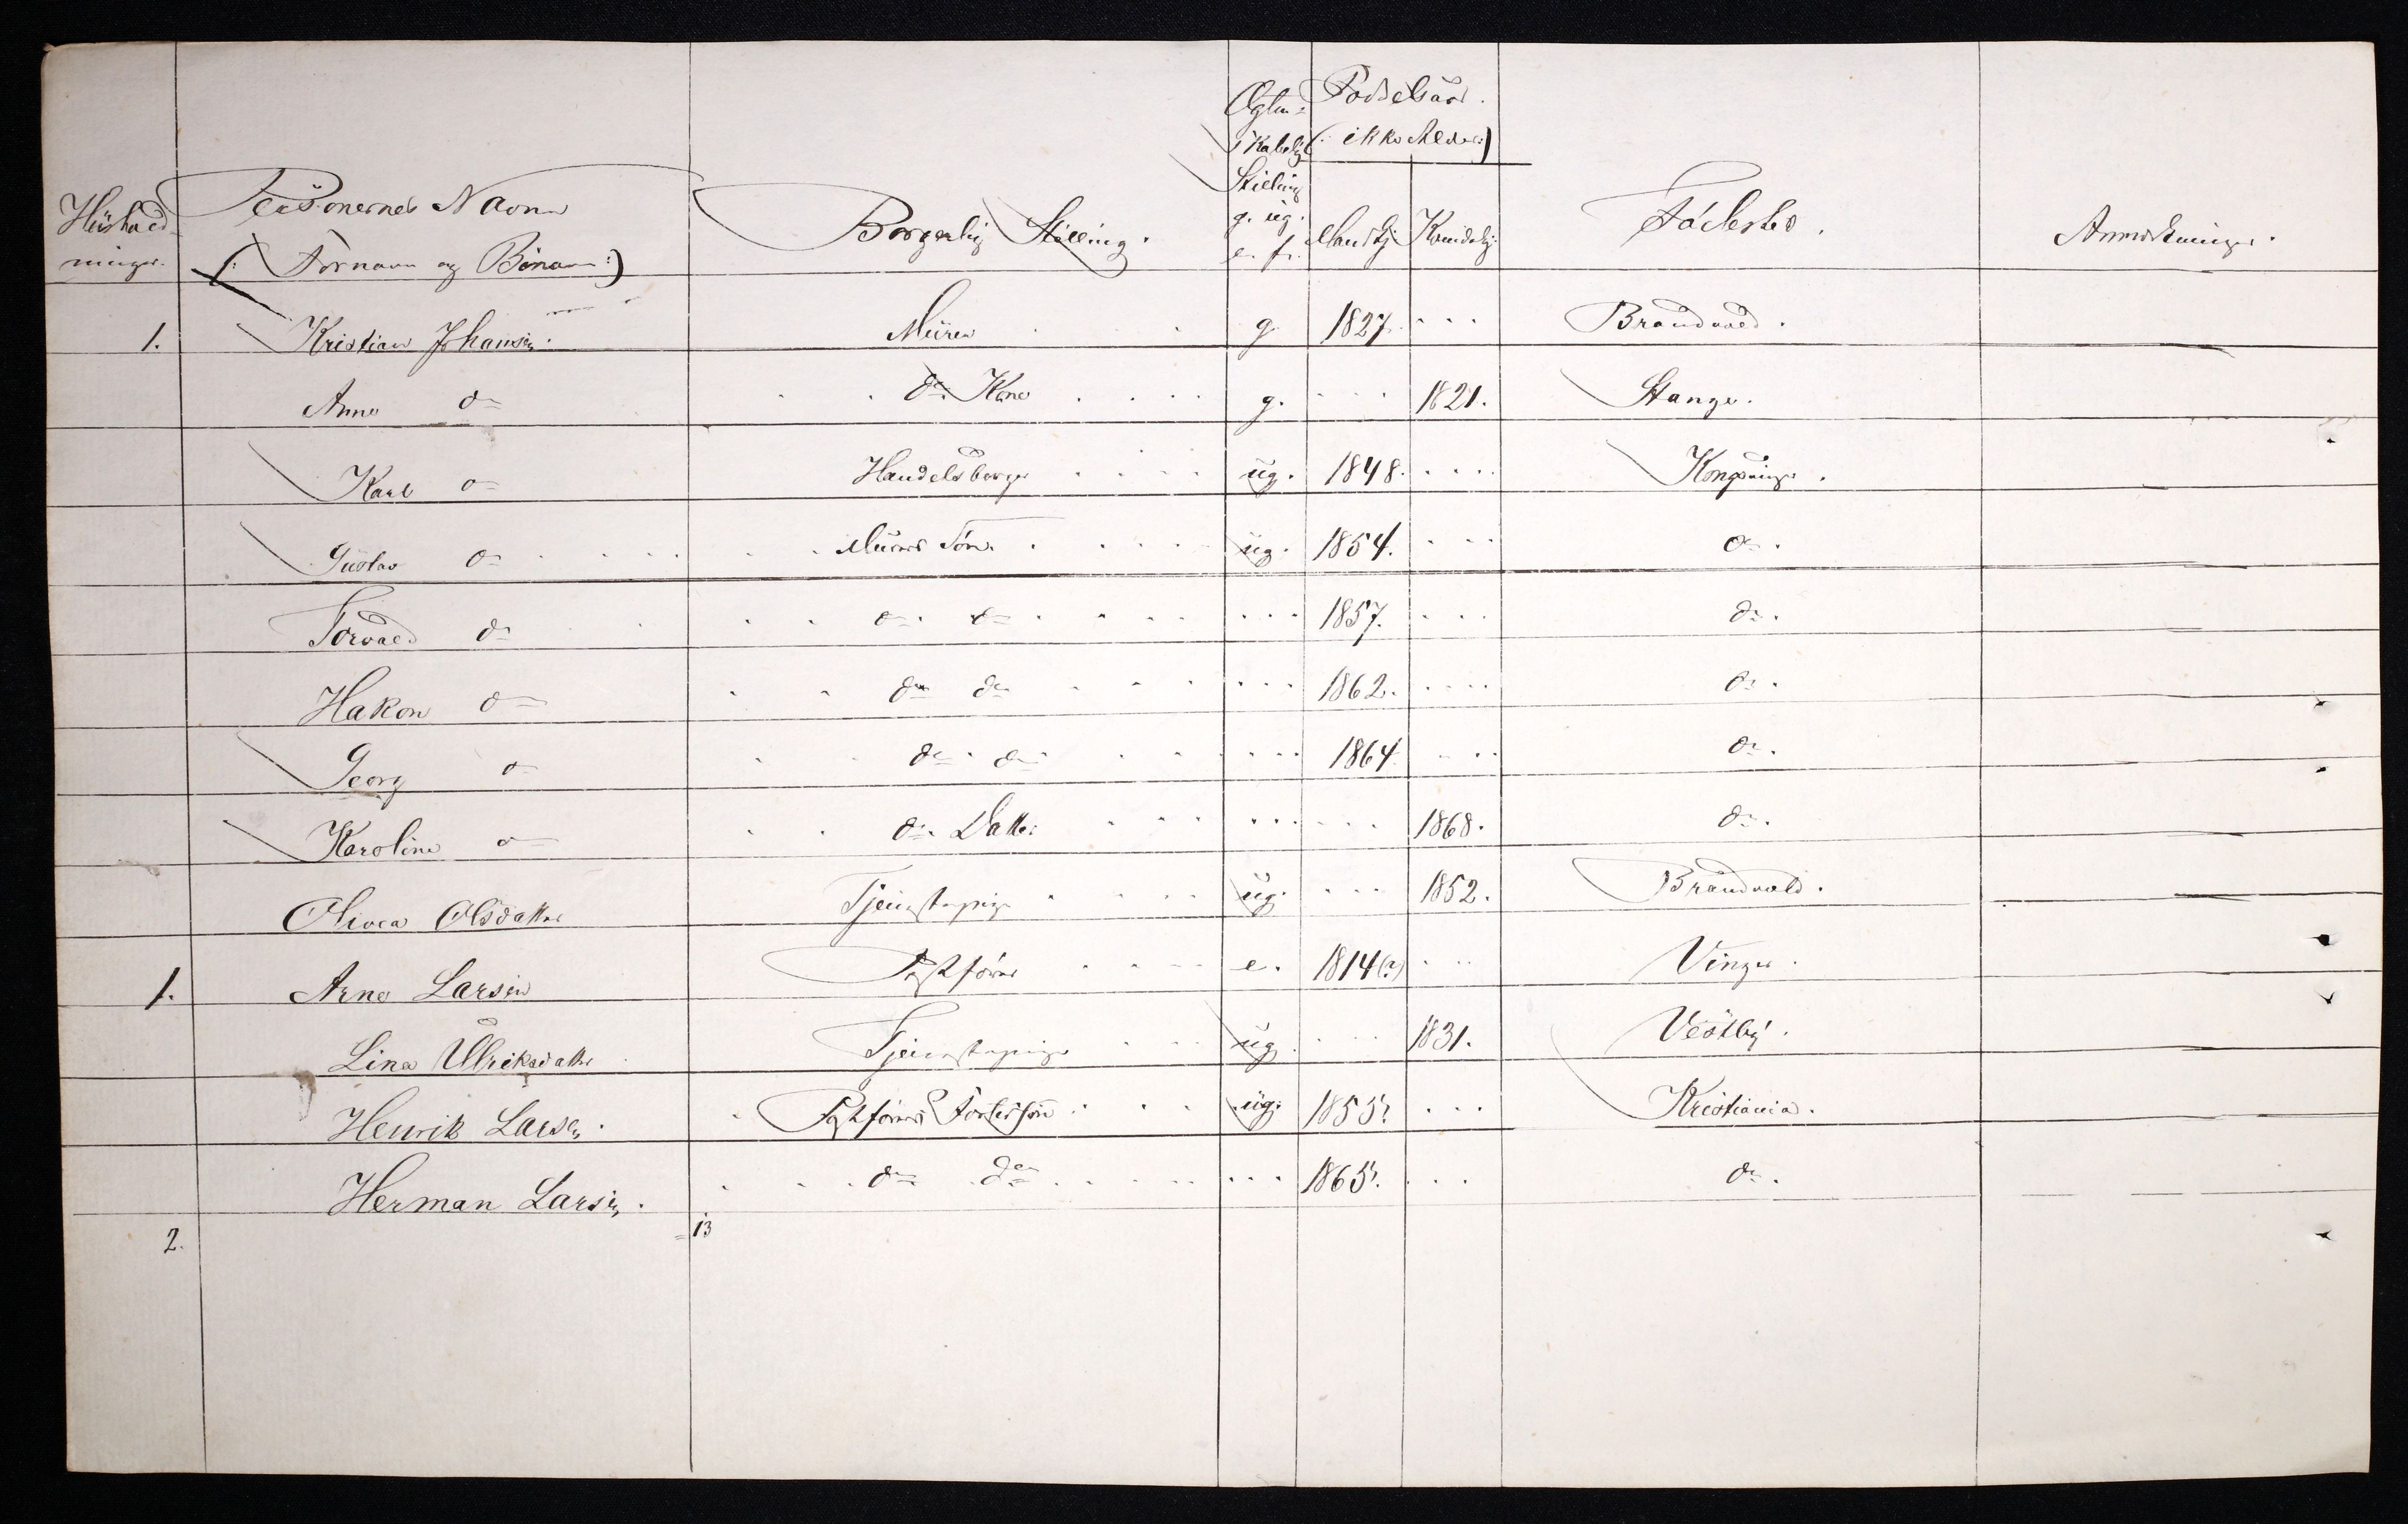 Husholdninger. Personernes Navne (: Fornavn og Binavn :) Borgerlig Stilling. Ægteskabelig Stilling g. ug. e. f. Fødselsaar. (: ikke Alder :) Mandkj. Kvindekj. Fødested. Anmærkninger.
1. Kristian Johansen. Murer g. 1827. Brandvold.
Anne do do Kone g. 1821. Stange.
Karl do Handelsborger ug. 1848. Kongsvinger.
Gustav do Murers Søn. ug. 1854. do.
Torvald do do. do 1857. do.
Hakon do do do 1862. do.
Georg do do. do 1864. do.
Karoline do do. Datter 1868. do.
Olivia Olsdatter Tjenestepige ug. 1852. Brandvold.
1. Arne Larsen e. 1814(?) Vinger.
Lina Ulriksdatter Tjenestepige ug. 1831. Vestby.
Henrik Larsen. ug. 1855. Kristiania.
Herman Larsen. do do 1865. do.
2. = 13